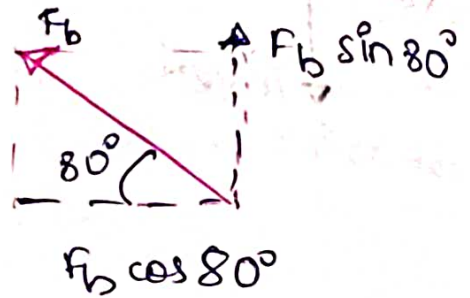 F_b
F_b sin 80°
80°
F_b cos 80°